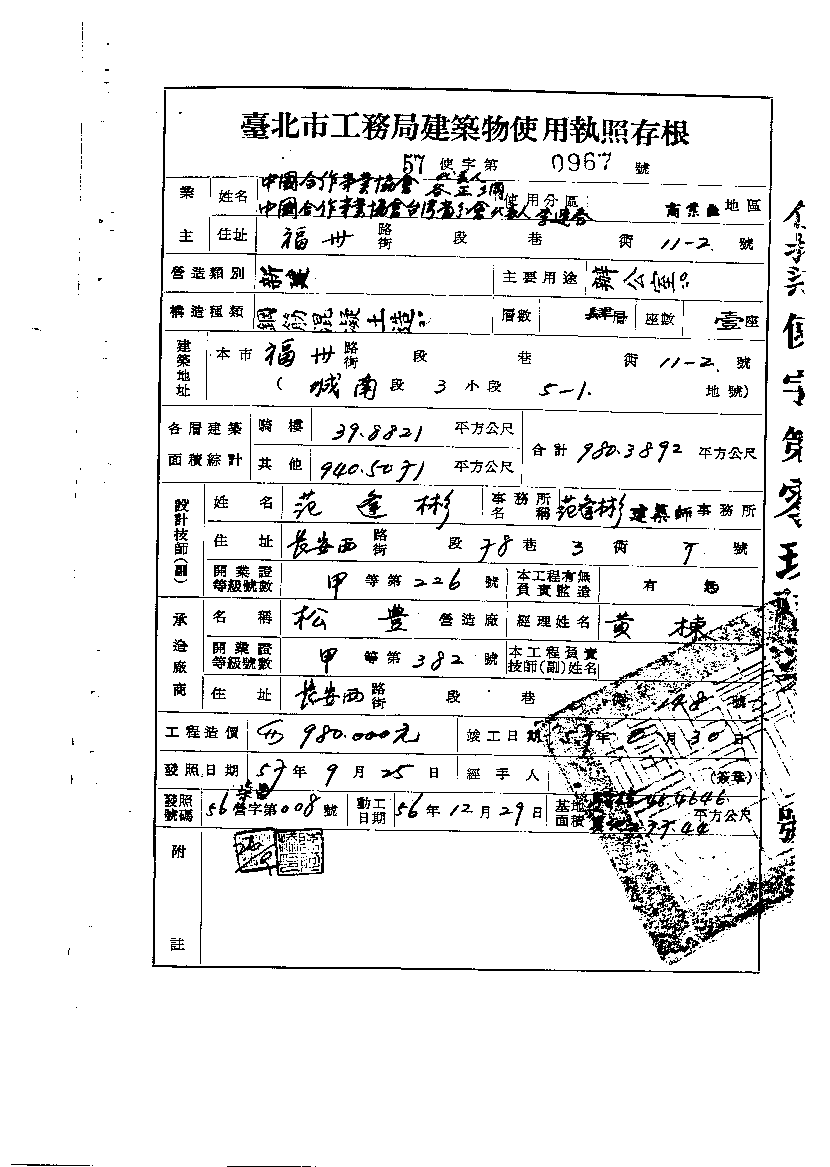 臺北市工務局建築物使用執照存根
57 使字第 0967 號
業主 姓名 中國合作事業協會 代表人 谷正綱
中國合作事業協會台灣省分會 代表人 使用分區 商業區 地區
住址 福州 路街 段 巷 衖 11-2 號
營造類別 新建 主要用途 辦公室
構造種類 鋼筋混凝土造 層數 肆層 座數 壹座
建築地址 本市 福州 路街 段 巷 衖 11-2 號
( 城南 段 3 小段 5-1 地號)
各層建築面積綜計 騎樓 39.8821 平方公尺 合計 980.3892 平方公尺
其他 940.5071 平方公尺
設計技師(副) 姓名 范逢彬 事務所名稱 范逢彬 建築師 事務所
住址 長安西 路街 段 78 巷 3 衖 7 號
開業證等級號數 甲 等第 226 號 本工程有無負責監證 有
承造廠商 名稱 松豐 營造廠 經理姓名 黃棟
開業證等級號數 甲 等第 382 號 本工程負責技師(副)姓名
住址 長安西 路街 段 巷 148 號
工程造價 980.000元 竣工日期 57 年 月 30 日
發照日期 57 年 9 月 25 日 經手人 (簽章)
發照號碼 56 營字第 008 號 動工日期 56 年 12 月 29 日 基地面積 平方公尺
附註